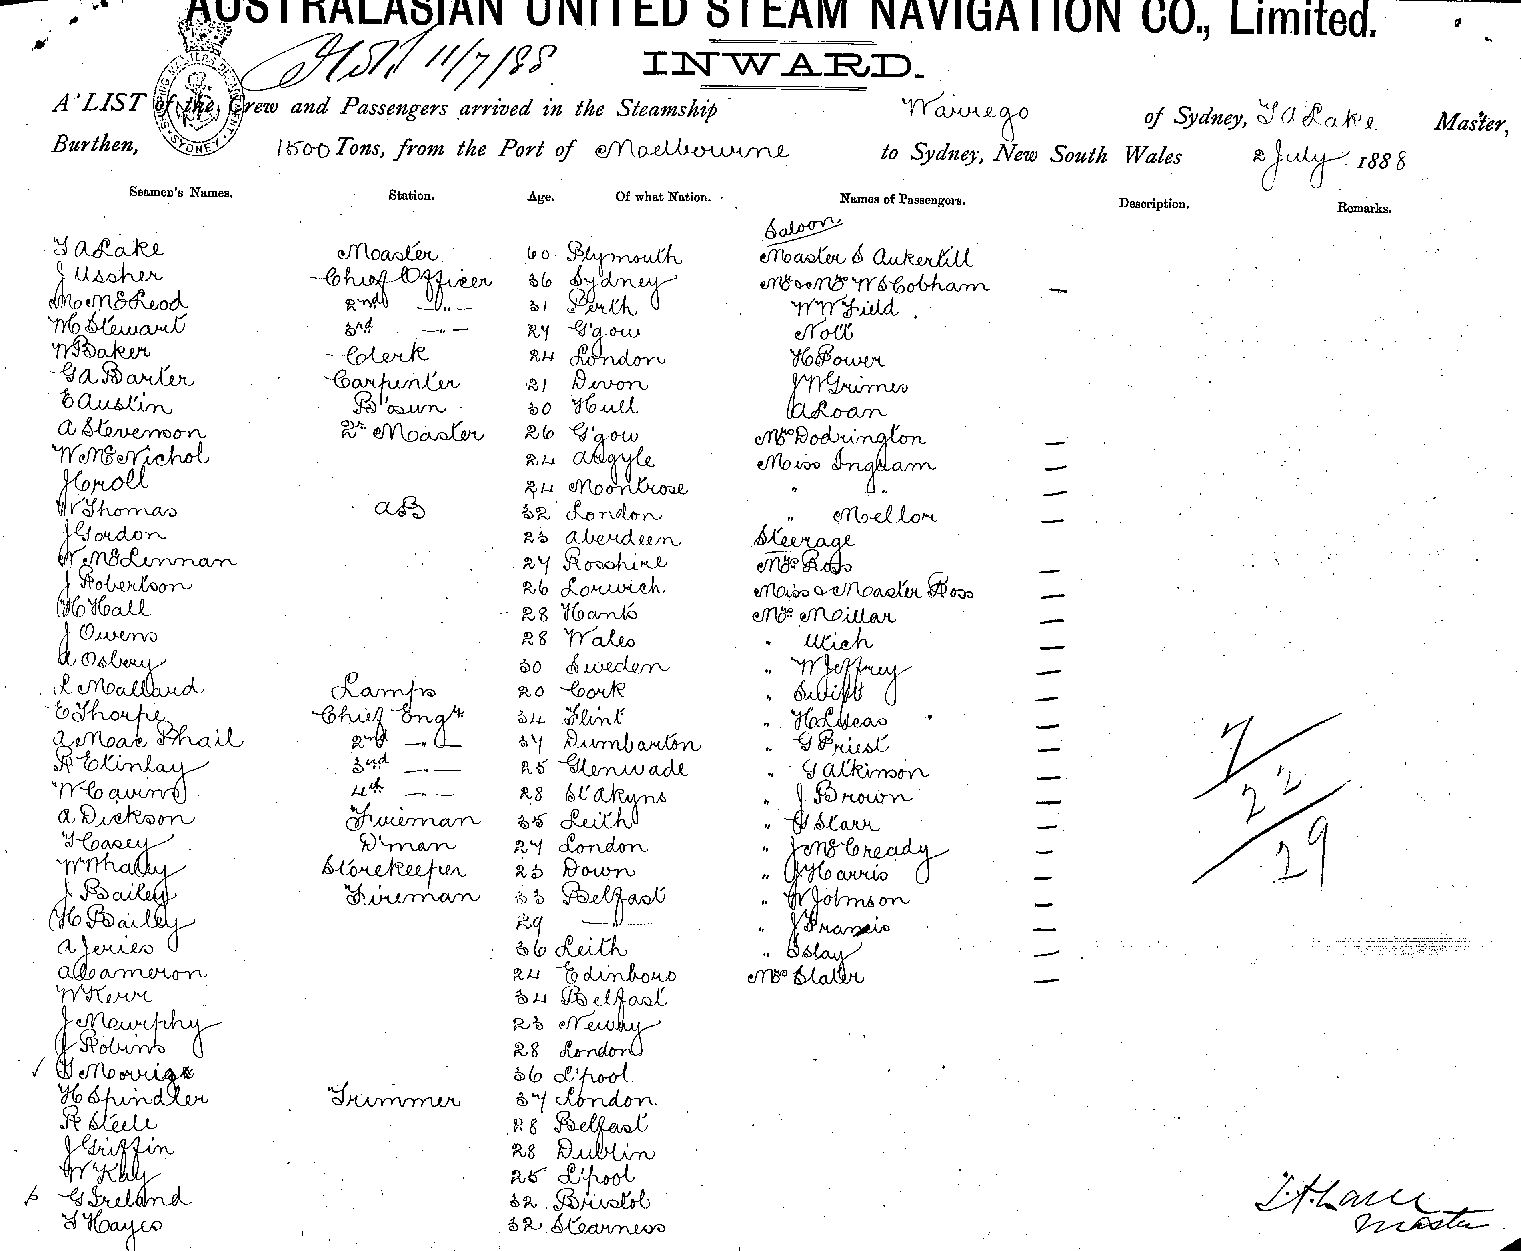 AUSTRALASIAN UNITED STEAM NAVIGATION CO., Limited.
11/7/88
INWARD.
A LIST of the Crew and Passengers arrived in the Steamship Warrego of Sydney, T A Lake Master,
Burthen, 1500 Tons, from the Port of Maelbourne to Sydney, New South Wales 2 July 1888
Seamen's Names. Station. Age. Of what Nation. Names of Passengers. Description. Remarks.
Saloon
T A Lake Master 60 Plymouth Master S Aukertill
J Ussher Chief Officer 36 Sydney Mr & Mrs W S Cobham —
M McLeod 2nd —"— 31 Perth W W Field
M C Stewart 3rd —"— 27 G'gow Noll
W Baker Clerk 24 London H Power
G A Barter Carpenter 21 Devon J W Grimes
E Austin B'osun 30 Hull A Loan
A Stevenson 2r Master 26 G'gow Mrs Dodrington —
W McNichol 24 Argyle Miss Ingham —
J Croll 24 Montrose " " —
W Thomas AB 32 London " Mellor —
J Gordon 23 Aberdeen Steerage
W McLennan 27 Rosshire Mrs Ross —
J Robertson 26 Lerwich Miss & Master Ross —
H Hall 28 Hants Mr Millar —
J Owens 28 Wales " Wich —
A Osbery 30 Sweden " W Jeffrey —
L Mallard Lamps 20 Cork " Swift —
E Thorpe Chief Engr 34 Flint " H Lucas —
A Mac Phail 2nd —"— 37 Dumbarton " G Priest —
R Etinlay 3rd —"— 25 Glenwade " G Atkinson —
W Cavins 4th —"— 28 St Akyns " J Brown —
A Dickson Fireman 35 Leith " G Starr —
T Casey D'man 27 London " J McCready —
W Whaley Storekeeper 23 Down " J Harris —
J Bailey Fireman 33 Belfast " W Johnson —
H Bailey 29 —"— " J Francis —
A Jeries 36 Leith " Islay —
A Cameron 24 Edinboro Mrs Slater —
W Kerr 34 Belfast
J Murphy 23 Newry
J Robins 28 London
36 L'pool
H Spindler Trimmer 37 London
R Steele 28 Belfast
J Griffin 28 Dublin
W Kay 25 L'pool
G Ireland 32 Bristol
T Hayes 32 Stearness
7
22
29
T. A. Lake
Master